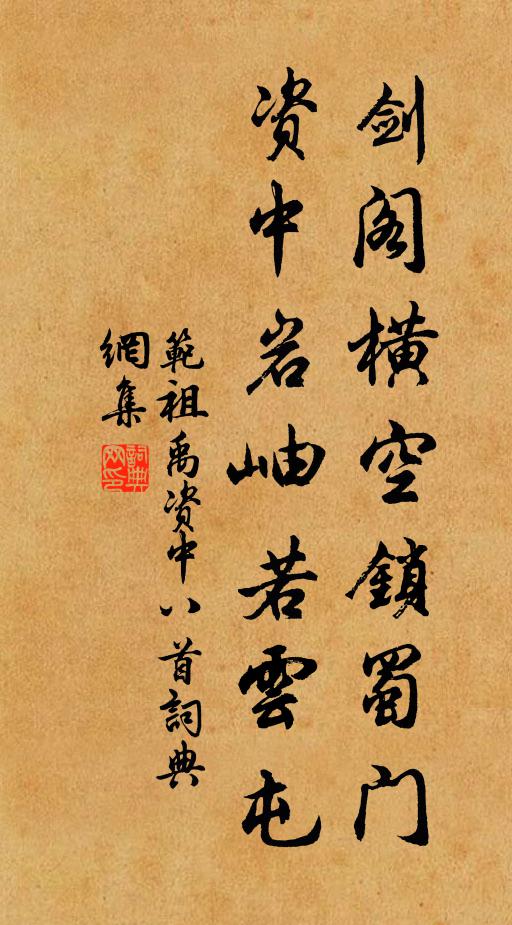 剑阁横空鎖蜀门
资中岩岫若雲屯
範祖禹资中八首詞典
網集
詞典網印